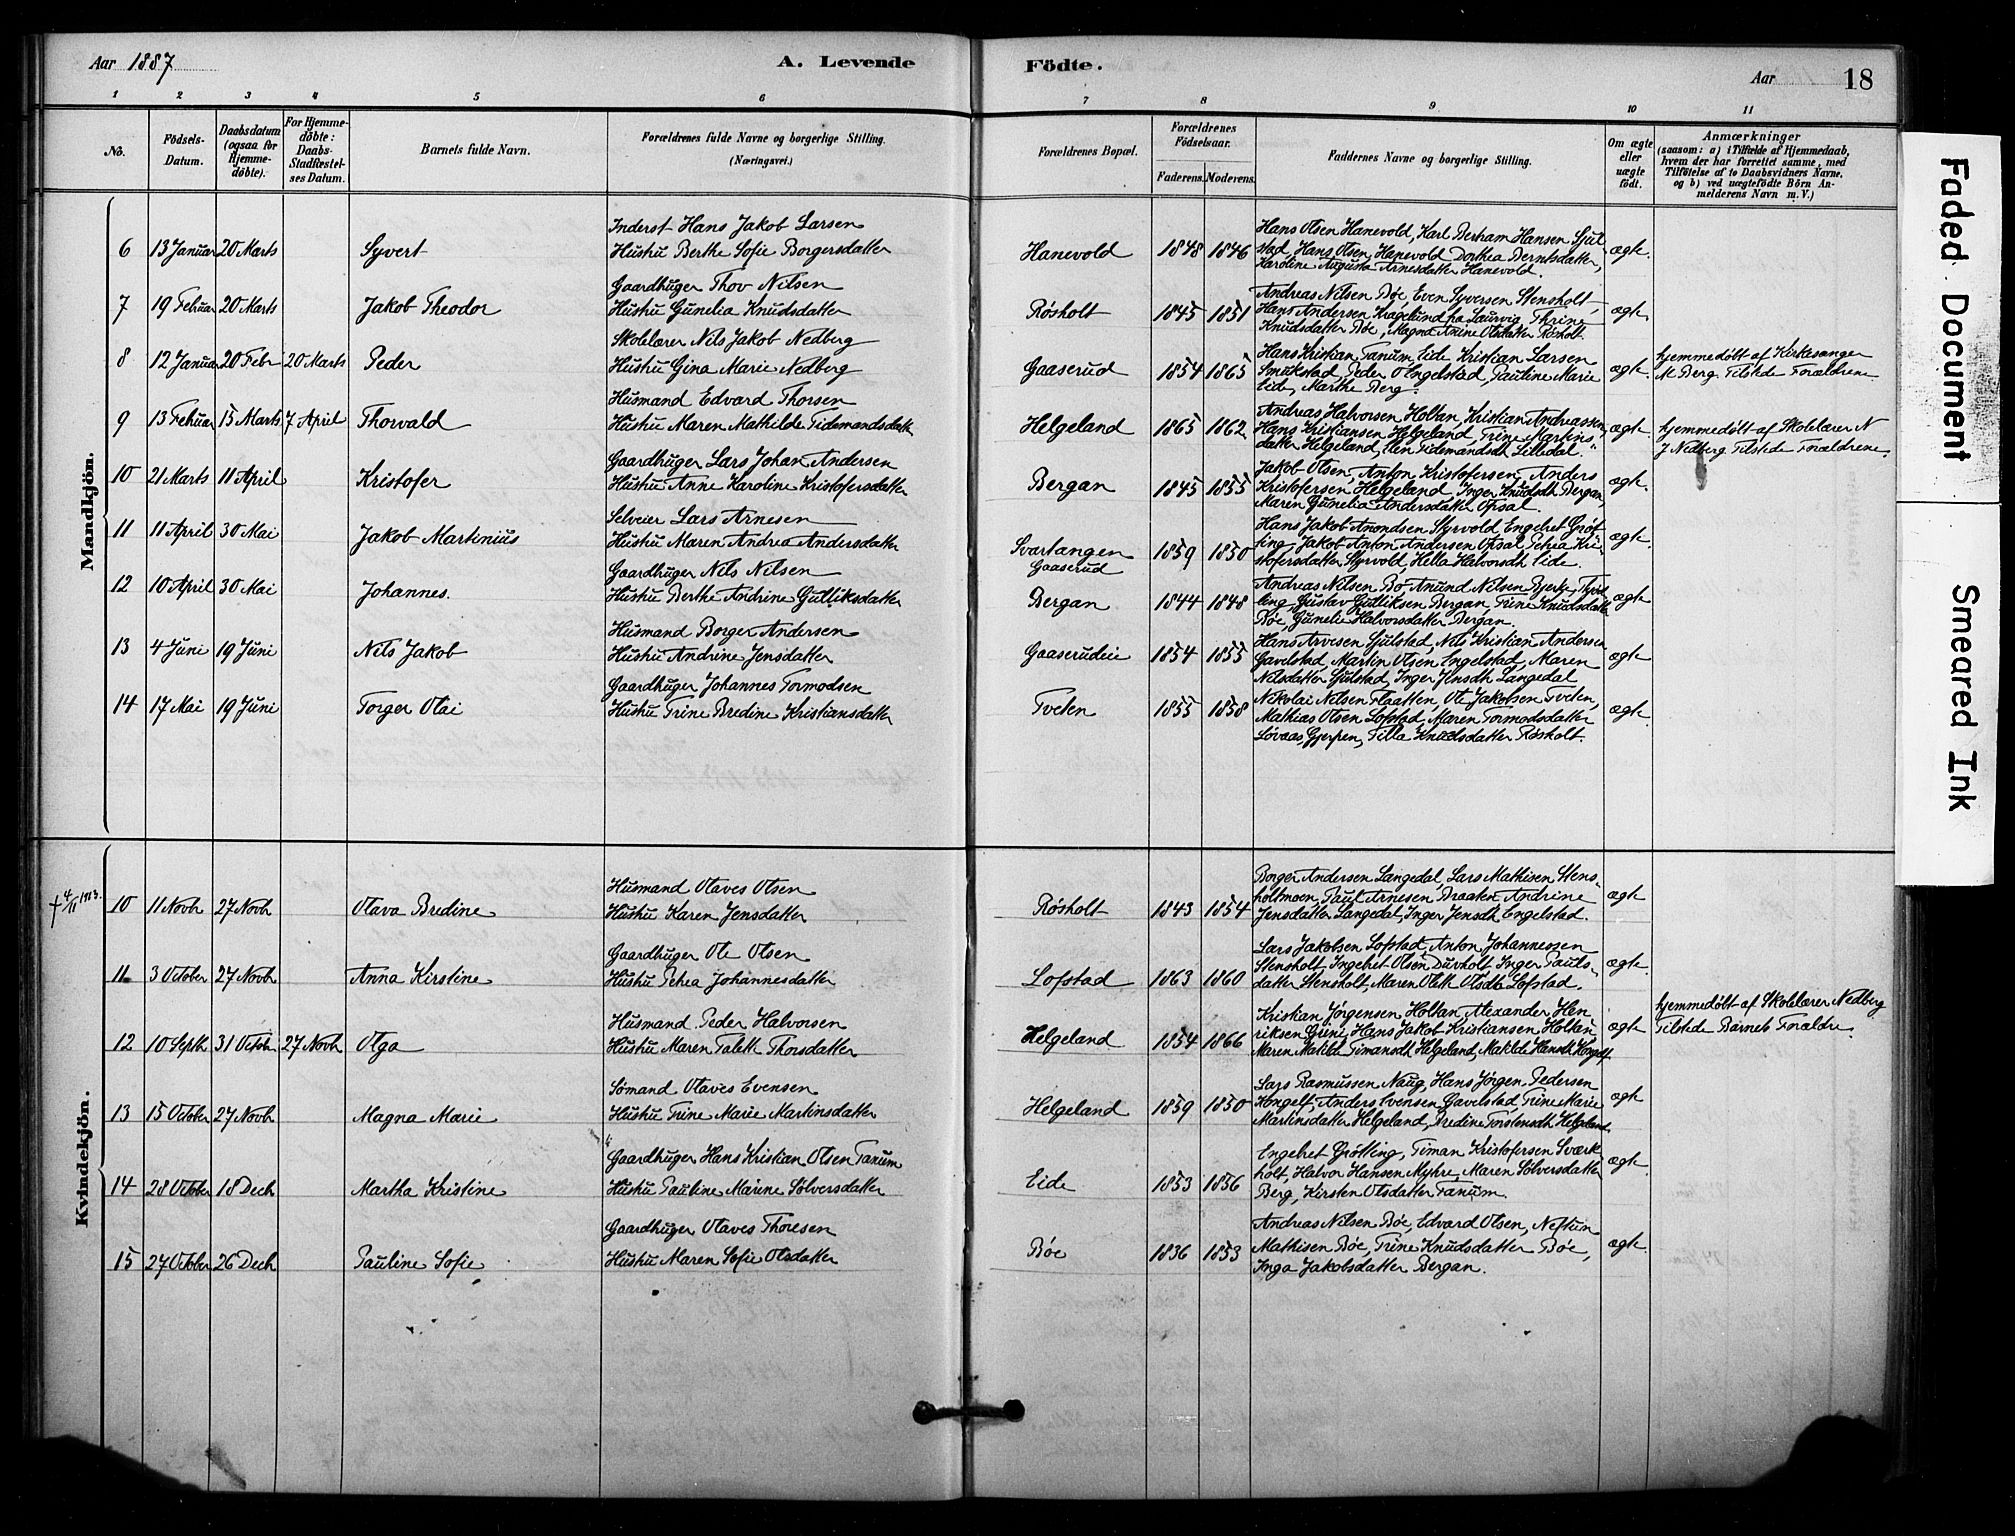 Aar 1887
A. Levende Födte.
Aar 18
1 2 3 4 5 6 7 8 9 10 11
No.
Födsels-Datum.
Daabsdatum (ogsaa for Hjemme-döbte).
For Hjemme-döbte: Daabs-Stadfæstel-ses Datum.
Barnets fulde Navn.
Forældrenes fulde Navne og borgerlige Stilling. (Næringsvei.)
Forældrenes Bopæl.
Forældrenes Födselsaar.
Faderens. Moderens.
Faddernes Navne og borgerlige Stilling.
Om ægte eller uægte födt.
Anmærkninger
(saasom: a) i Tilfælde af Hjemmedaab, hvem der har forrettet samme, med Tilföielse af to Daabsvidners Navne, og b) ved uægtefödte Börn An-melderens Navn m. V.)
Mandkjön.
6 13 Januar 20 Marts Syvert
Inderst Hans Jakob Larsen
Hustru Berthe Sofie Borgersdatter
Hanevold 1848 1846
Hans Olsen Hanevold, Karl Berham Hansen Sjul
stad, Hans Olsen Hanevold Dorthea Berntsdatter,
Karoline Augusta Arnesdatter Hanevold.
ægte.
7 19 Februar 20 Marts Jakob Theodor
Gaardbruger Thov Nilsen
Hustru Gunelia Knudsdatter
Røsholt 1845 1851
Andreas Nilsen Bøe, Even Syversen Stensholt,
Hans Andersen Kragelund fra Laurvig, Thrine
Knudsdatter Bøe, Magna Anine Olsdatter Røsholt.
ægte.
8 12 Januar 20 Febr 20 Marts Peder
Skolelærer Nils Jakob Nedberg
Hustru Gina Marie Nedberg
Gaaserud 1854 1865
Hans Kristian Tanum Eide Kristian Larsen
Smukstad, Peder O Engelstad, Pauline Marie
Eide, Marthe Berg.
ægte.
hjemmedøbt af Kirkesanger
M Berg. Tilstede Forældrene.
9 13 Februar 15 Marts 7 April Thorvald
Husmand Edvard Thorsen
Hustru Maren Mathilde Tidemandsdatt
Helgeland 1865 1862
Andreas Halvorsen Holtan, Kristian Andreassen,
Hans Kristiansen Helgeland, Trine Martins-
datter Helgeland, Elen Tidemandsdt Lilledal.
ægte.
hjemmedøbt af Skolelærer N
J Nedberg Tilstede Forældrene.
10 21 Marts 11 April Kristofer
Gaardbruger Lars Johan Andersen
Hustru Anne Karoline Kristofersdatter
Bergan 1845 1855
Jakob Olsen, Anton Kristofersen, Anders
Kristofersen Helgeland, Inger Knudsdt Bergan,
Maren Gunelia Andersdatter Opsal.
ægte.
11 11 April 30 Mai Jakob Martinius
Selveier Lars Arnesen
Hustru Maren Andrea Andersdatter
Svartangen
Gaaserud 1859 1850
Hans Jakob Anondsen Styrvold, Engebret Grøt
ting, Jakob Anton Andersen Opsal Petrea Kri-
stofersdatter Styrvold, Hella Halvorsdt Eide.
ægte.
12 10 April 30 Mai Johannes.
Gaardbruger Nils Nilsen
Hustru Berthe Andrine Gulliksdatter
Bergan 1844 1848
Andreas Nilsen Bø Anund Nilsen Bjerke,
Gustav Gulliksen Bergan, Trine Knudsdatter
Bøe, Gunelie Halvorsdatter Bergan.
ægte
13 4 Juni 19 Juni Nils Jakob
Husmand Borger Andersen
Hustru Andrine Jensdatter
Gaaserudeie 1854 1855
Hans Arvesen Sjulstad, Nils Kristian Andersen
Gavelstad, Martin Olsen Engelstad, Maren
Nilsdatter Sjulstad, Inger Jensdt Langedal
ægte
14 17 Mai 19 Juni Torger Olai
Gaardbruger Johannes Tormodsen
Hustru Trine Bredine Kristiansdatter
Tveten 1855 1858
Nikolai Nilsen Flaatten, Ole Jakobsen Tveten,
Mathias Olsen Lofstad, Maren Tormodsdatter
Løvaas, Gjerpen, Tilla Knudsdatter Røsholt.
ægte
Kvindekjön.
† 4/11 1913.
10 11 Novbr 27 Novbr Olava Bredine
Husmand Olaves Olsen
Hustru Karen Jensdatter
Røsholt 1843 1854
Borger Andersen Langedal, Lars Mathisen Stens-
holtmoen, Paul Arnesen Braaten Andrine
Jensdatter Langedal, Inger Jensdt Engelstad.
ægte
11 3 October 27 Novbr Anna Kirstine
Gaardbruger Ole Olsen
Hustru Petrea Johannesdatter
Lofstad 1863 1860
Lars Jakobsen Lofstad, Anton Johannessen
Stensholt Ingebret Olsen Durholt Inger Pauls-
datter Stensholt, Maren Oleth Olsdtr Lofstad.
ægte.
12 10 Septbr 31 Octobr 27 Novbr Olga
Husmand Peder Halvorsen
Hustru Maren Taleth Thorsdatter
Helgeland 1854 1866
Kristian Jørgensen Holtan, Alexander Hen
riksen Grini, Hans Jakob Kristiansen Holtan
Maren Matilde Timansdt Helgeland, Matilde Hansdt Kongelf
ægte
hjemmedøbt af Skolelærer Nedberg
Tilstede Barnets Forældre.
13 15 October 27 Novbr Magna Marie
Sømand Olaves Evensen
Hustru Trine Marie Martinsdatter
Helgeland 1859 1850
Lars Rasmussen Naug, Hans Jørgen Pedersen
Kongelf, Anders Evensen Gavelstad Trine Marie
Martinsdatter Helgeland, Bredine Torstensdt Helgeland.
ægte
14 28 October 18 Decbr Martha Kristine
Gaardbruger Hans Kristian Olsen Tanum
Hustru Pauline Marene Sølversdatter
Eide 1853 1856
Engebret Grøtting, Timan Kristofersen Sværk
holt, Halvor Hansen Myhre, Maren Sølversdatter
Berg, Kirsten Olsdatter Tanum.
ægte.
15 27 October 26 Decbr Pauline Sofie
Gaardbruger Olaves Thoresen
Hustru Maren Sofie Olsdatter
Bøe 1836 1853
Andreas Nilsen Bøe, Edvard Olsen, Neftun
Mathisen Bøe, Trine Knudsdatter Bøe,
Inga Jakobsdatter Bergan.
ægte.
Faded Document
Smeared Ink